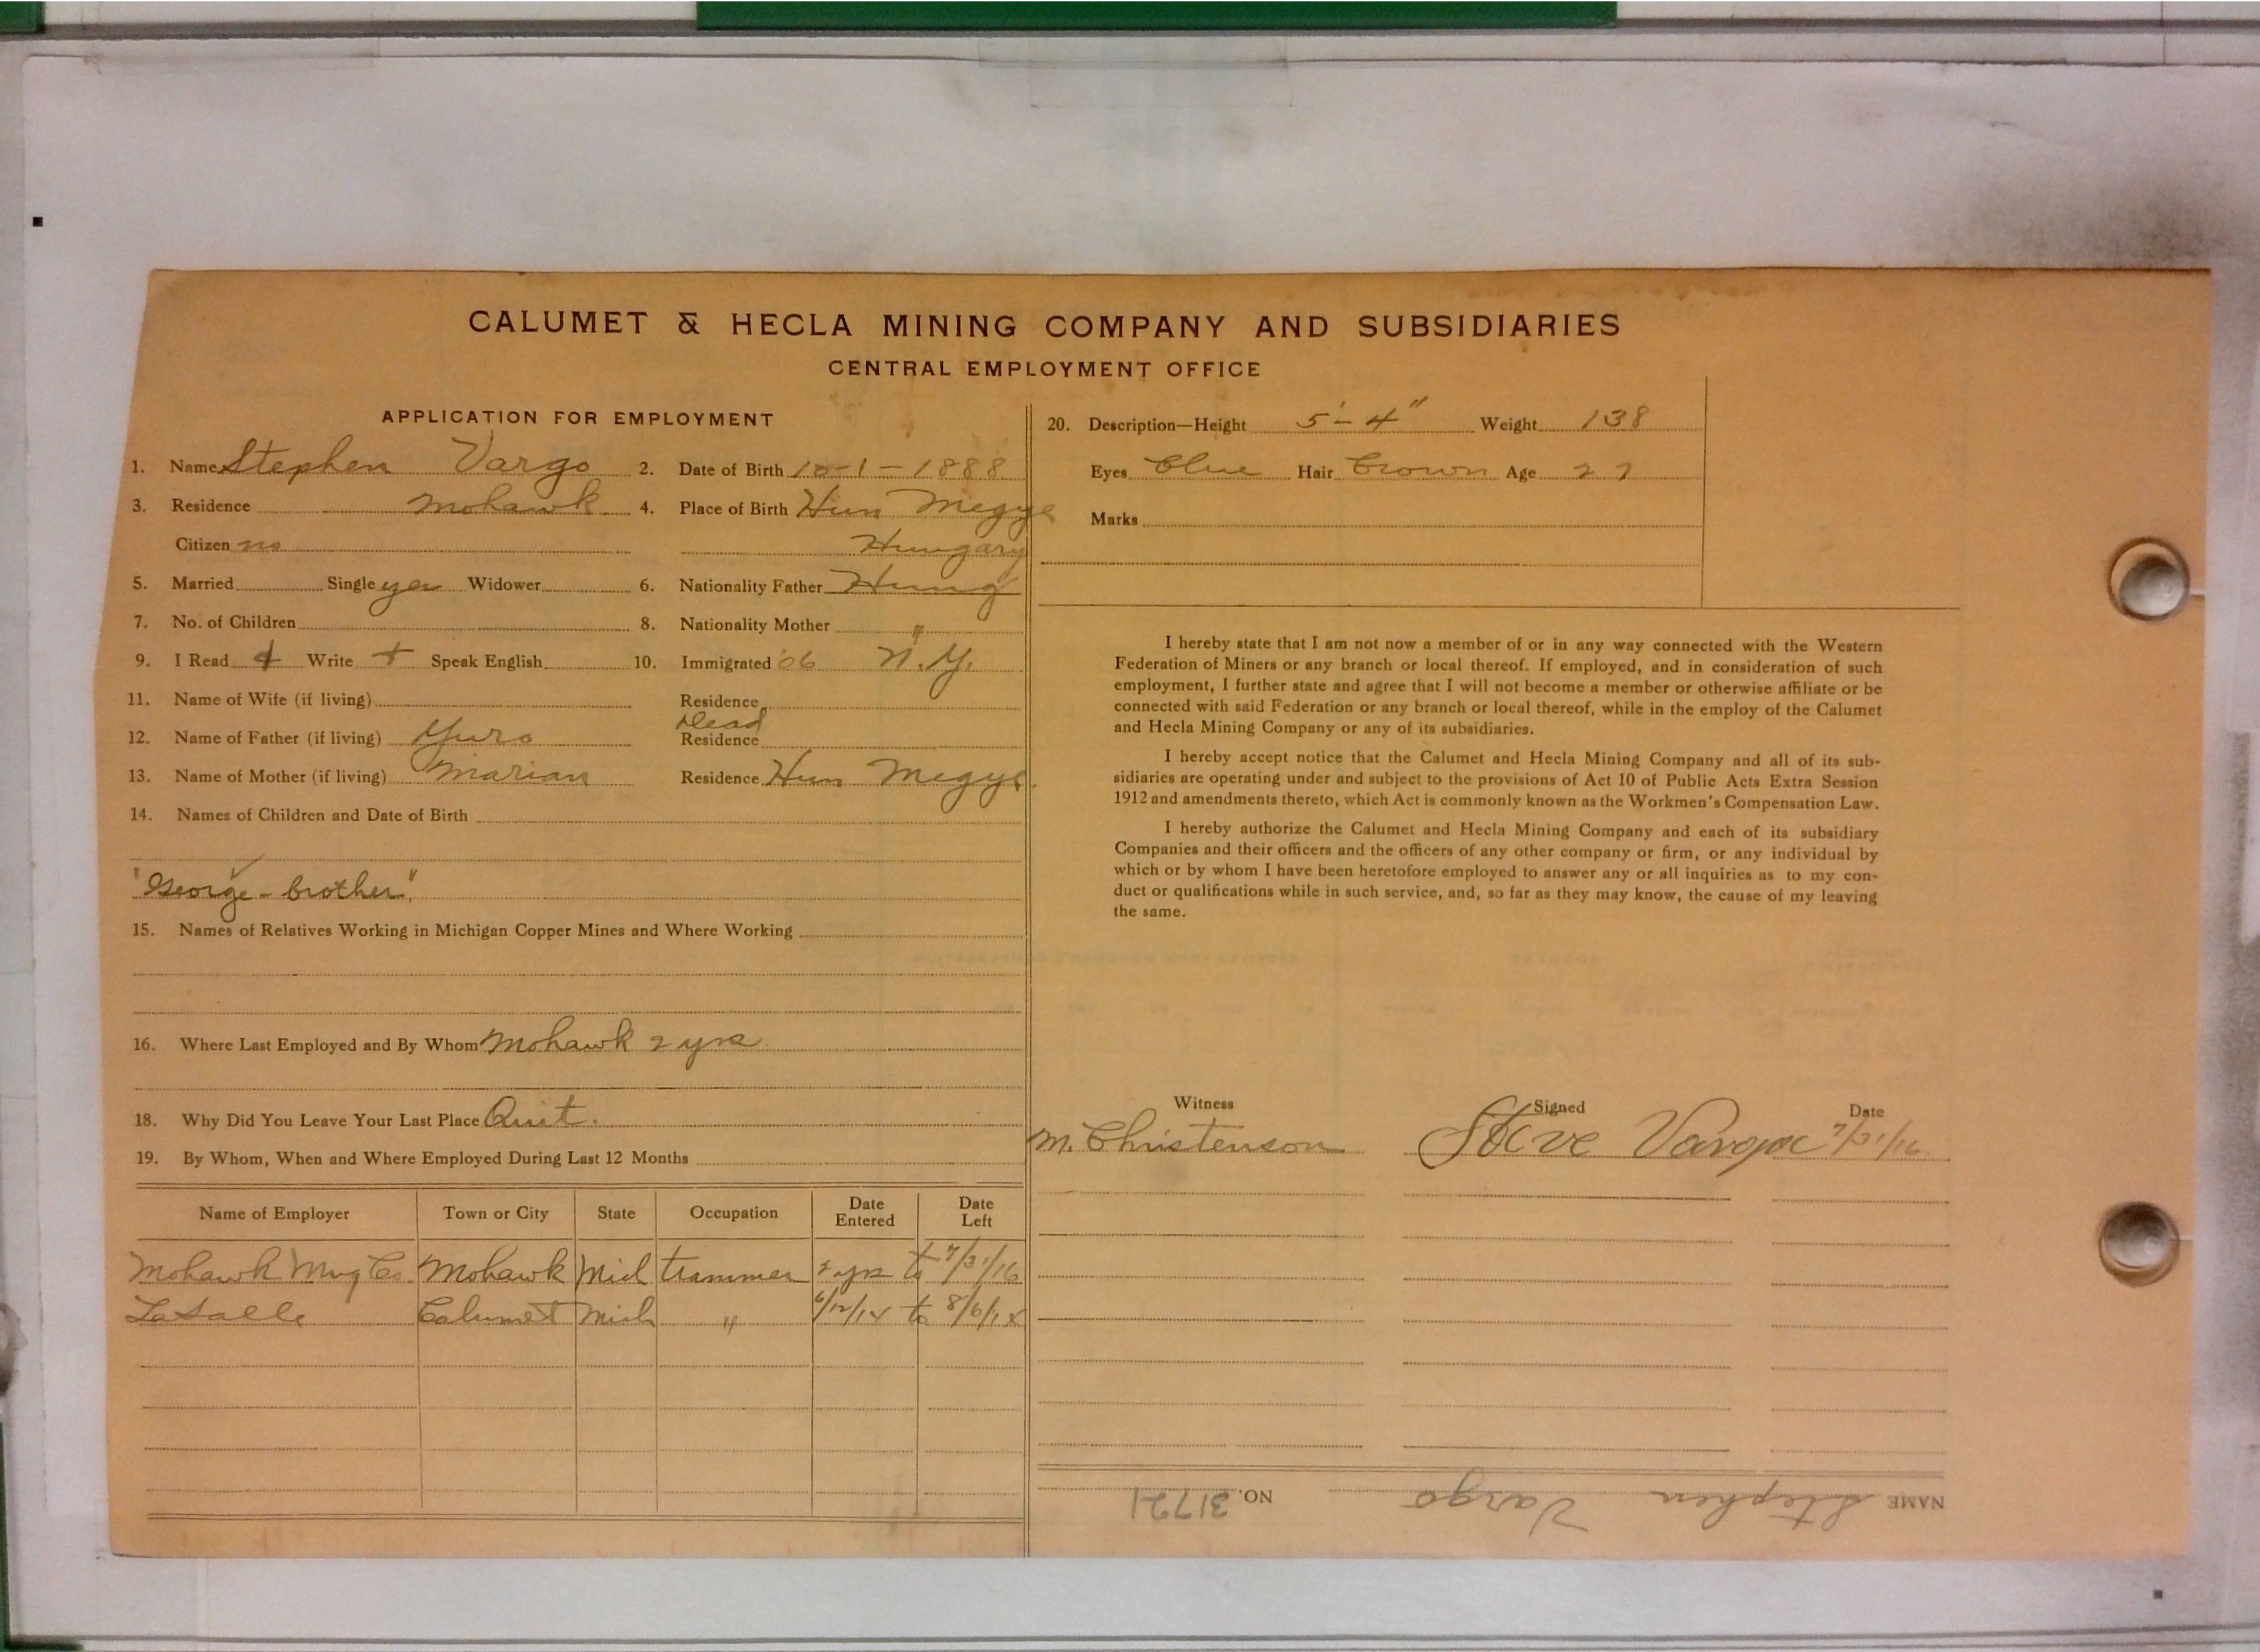 CALUMET & HECLA MINING COMPANY AND SUBSIDIARIES
CENTRAL EMPLOYMENT OFFICE
APPLICATION FOR EMPLOYMENT
1. Name Stephen Vargo 2. Date of Birth 10-1-1888
3. Residence Mohawk 4. Place of Birth Hun Megye
Citizen no Hungary
5. Married Single yes Widower 6. Nationality Father Hung
7. No. of Children 8. Nationality Mother "
9. I Read + Write + Speak English 10. Immigrated '06 N.Y.
11. Name of Wife (if living) Residence
Dead
12. Name of Father (if living) Yuro Residence
13. Name of Mother (if living) Marian Residence Hun Megye
14. Names of Children and Date of Birth
"George - brother"
15. Names of Relatives Working in Michigan Copper Mines and Where Working
16. Where Last Employed and By Whom Mohawk 2 yrs
18. Why Did You Leave Your Last Place Quit.
19. By Whom, When and Where Employed During Last 12 Months
Name of Employer Town or City State Occupation Date Entered Date Left
Mohawk Mng Co. Mohawk Mich trammer 2 yrs to 7/31/16
LaSalle Calumet Mich " 6/12/14 to 8/6/14
20. Description—Height 5'-4" Weight 138
Eyes blue Hair brown Age 27
Marks
I hereby state that I am not now a member of or in any way connected with the Western
Federation of Miners or any branch or local thereof. If employed, and in consideration of such
employment, I further state and agree that I will not become a member or otherwise affiliate or be
connected with said Federation or any branch or local thereof, while in the employ of the Calumet
and Hecla Mining Company or any of its subsidiaries.
I hereby accept notice that the Calumet and Hecla Mining Company and all of its sub-
sidiaries are operating under and subject to the provisions of Act 10 of Public Acts Extra Session
1912 and amendments thereto, which Act is commonly known as the Workmen's Compensation Law.
I hereby authorize the Calumet and Hecla Mining Company and each of its subsidiary
Companies and their officers and the officers of any other company or firm, or any individual by
which or by whom I have been heretofore employed to answer any or all inquiries as to my con-
duct or qualifications while in such service, and, so far as they may know, the cause of my leaving
the same.
Witness Signed Date
M. Christenson Steve Varga 7/31/16
NAME Stephen Vargo NO. 31721